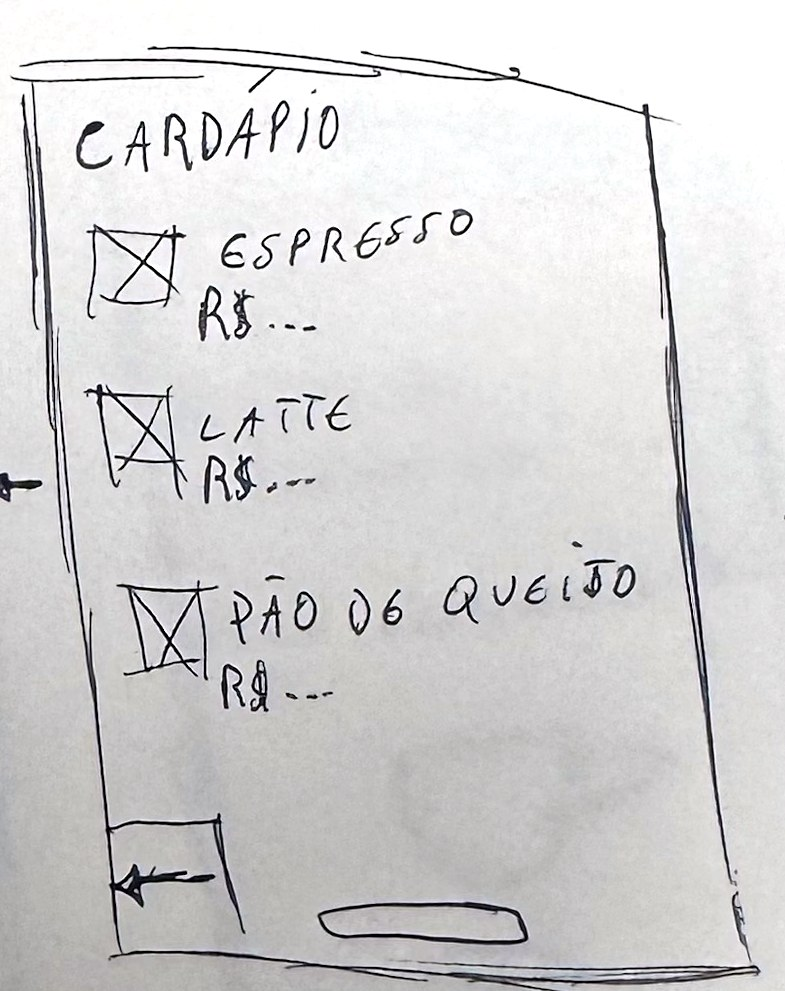 CARDÁPIO
ESPRESSO
R$...
LATTE
R$...
PÃO DE QUEIJO
R$...